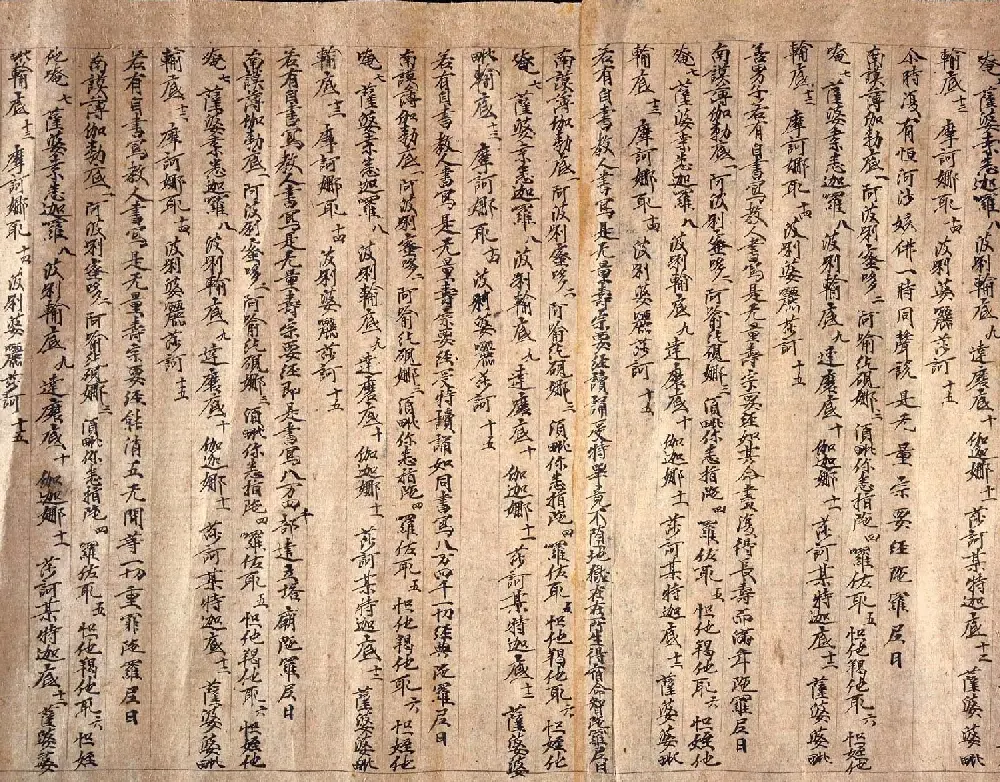 唵七 薩婆桑悉迦羅八 波唎輸底九 達磨底十 伽迦娜十一 莎訶某特迦底十二 薩婆婆毗
輸底十三 摩訶娜取十四 波唎婆囇莎訶十五
尒時復有恒河沙姟佛一時同聲說是无量宗要経陁羅尼曰
南謨薄伽勃底一 阿波唎蜜哆二 阿喻紇硯娜三 須毗你悉指陁四 囉佐取五 怛他羯他取六 怛姪他
唵七 薩婆桑悉迦羅八 波唎輸底九 達磨底十 伽迦娜十一 莎訶某特迦底十二 薩婆婆毗
輸底十三 摩訶娜取十四 波唎婆囇莎訶十五
善男子若有自書寫教人書寫是无量壽宗要経如其命盡復得長壽而滿年陁羅尼曰
南謨薄伽勃底一 阿波唎蜜哆二 阿喻紇硯娜三 須毗你悉指陁四 囉佐取五 怛他羯他取六 怛姪他
唵七 薩婆桑悉迦羅八 波唎輸底九 達磨底十 伽迦娜十一 莎訶某特迦底十二 薩婆婆毗
輸底十三 摩訶娜取十四 波唎婆囇莎訶十五
若有自書教人書寫是无量壽宗要経讀誦受持畢竟不墮地獄在在所生得宿命智陁羅尼曰
南謨薄伽勃底一 阿波唎蜜哆二 阿喻紇硯娜三 須毗你悉指陁四 囉佐取五 怛他羯他取六 怛姪他
唵七 薩婆桑悉迦羅八 波唎輸底九 達磨底十 伽迦娜十一 莎訶某特迦底十二 薩婆婆
毗輸底十三 摩訶娜取十四 波唎婆囇莎訶十五
若有自書教人書寫是无量壽宗要経受持讀誦如同書寫八万四千一切経典陁羅尼曰
南謨薄伽勃底一 阿波唎蜜哆二 阿喻紇硯娜三 須毗你悉指陁四 囉佐取五 怛他羯他取六 怛姪他
唵七 薩婆桑悉迦羅八 波唎輸底九 達磨底十 伽迦娜十一 莎訶某特迦底十二 薩婆婆毗
輸底十三 摩訶娜取十四 波唎婆囇莎訶十五
若有自書寫教人書寫是无量壽宗要経即是書寫八万四千部建立塔廟陁羅尼曰
南謨薄伽勃底一 阿波唎蜜哆二 阿喻紇硯娜三 須毗你悉指陁四 囉佐取五 怛他羯他取六 怛姪他
唵七 薩婆桑悉迦羅八 波唎輸底九 達磨底十 伽迦娜十一 莎訶某特迦底十二 薩婆婆毗
輸底十三 摩訶娜取十四 波唎婆囇莎訶十五
若有自書寫教人書寫是无量壽宗要経能消五无間等一切重罪陁羅尼曰
南謨薄伽勃底一 阿波唎蜜哆二 阿喻紇硯娜三 須毗你悉指陁四 囉佐取五 怛他羯他取六 怛姪
他唵七 薩婆桑悉迦羅八 波唎輸底九 達磨底十 伽迦娜十一 莎訶某特迦底十二 薩婆婆
毗輸底十三 摩訶娜取十四 波唎婆囇莎訶十五